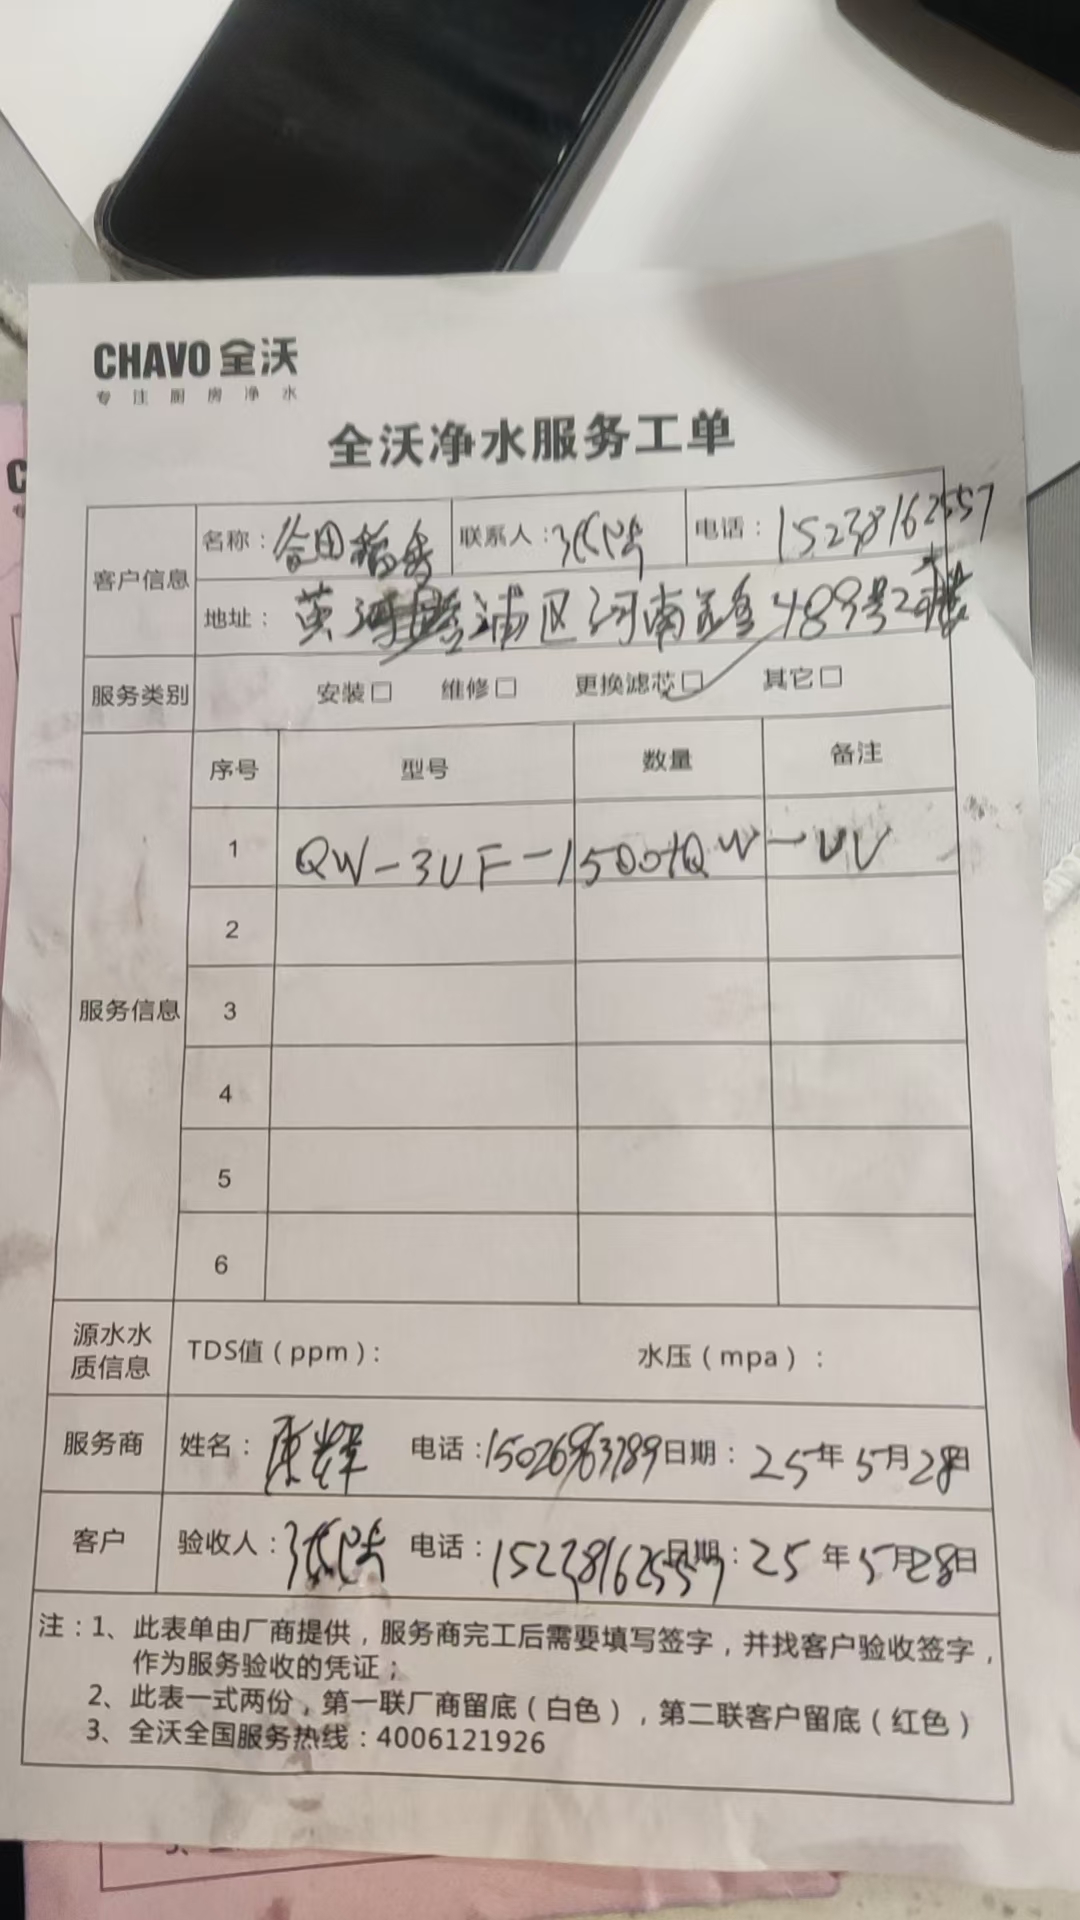 CHAVO 全沃
专注厨房净水
全沃净水服务工单
客户信息
名称：谷田稻香 联系人：张 电话：15238162557
地址：黄浦区河南 489号2楼
服务类别 安装□ 维修□ 更换滤芯□ 其它□
服务信息
序号 型号 数量 备注
1 QW-3UF-1500+QW-UV
2
3
4
5
6
源水水质信息 TDS值（ppm）： 水压（mpa）：
服务商 姓名：康辉 电话：15026963789 日期：25年5月28日
客户 验收人：张 电话：15238162557 日期：25年5月28日
注：1、此表单由厂商提供，服务商完工后需要填写签字，并找客户验收签字，
作为服务验收的凭证；
2、此表一式两份，第一联厂商留底（白色），第二联客户留底（红色）
3、全沃全国服务热线：4006121926